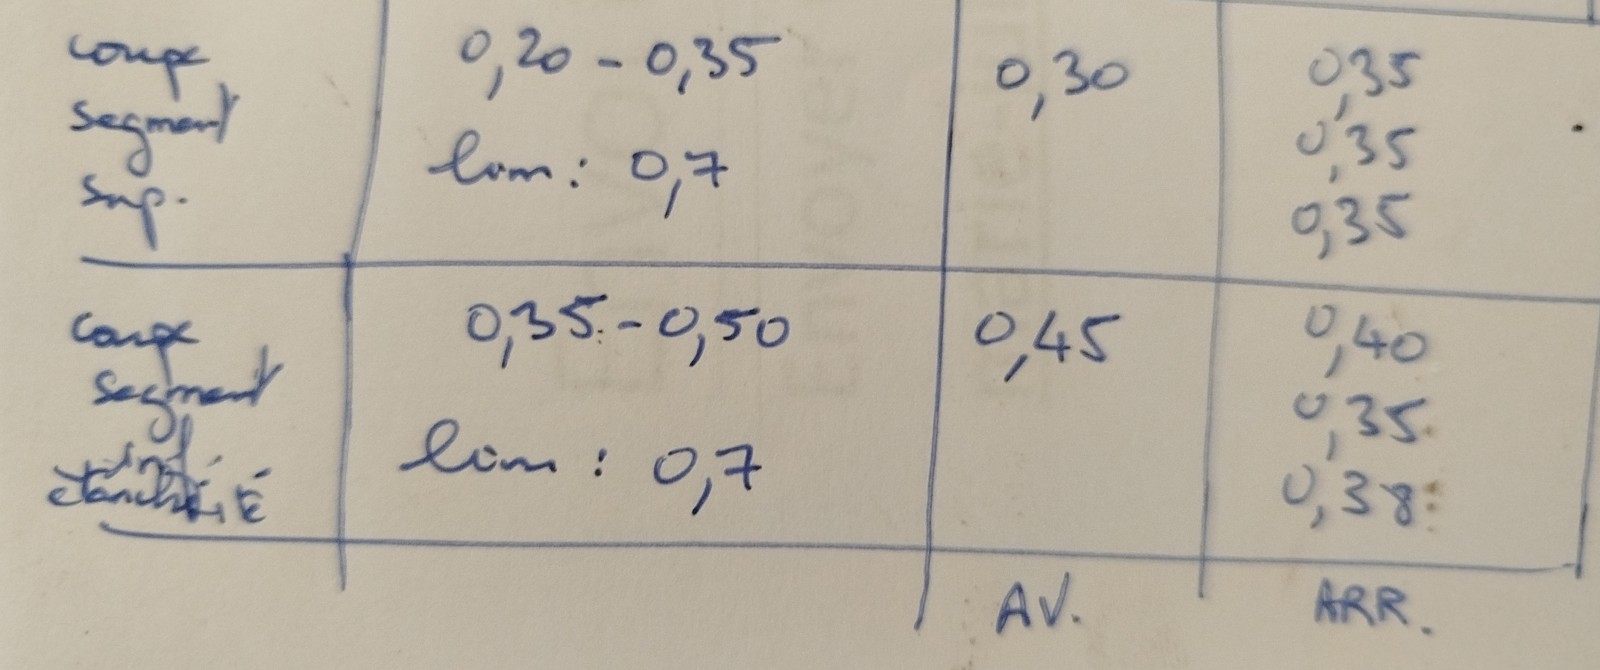 coupe 0,20 - 0,35 0,30 0,35
segment 0,35
sup. lim: 0,7 0,35
coupe 0,35 - 0,50 0,45 0,40
segment 0,35
inf lim : 0,7 0,38
étanchéité
AV. ARR.